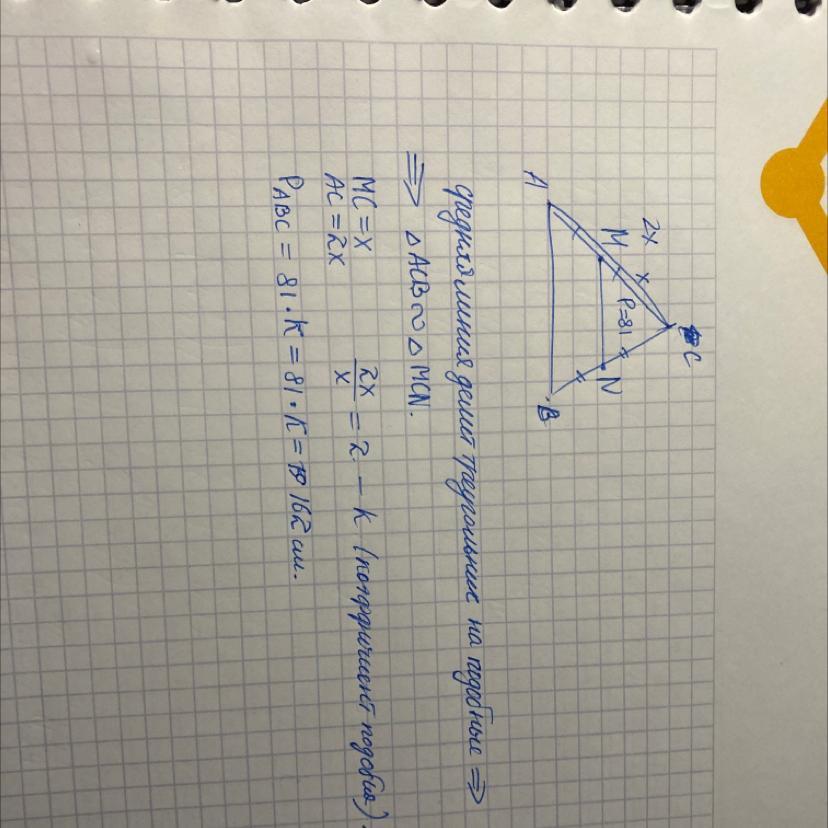 C
2x x
M P=81 N
A B
средняя линия делит треугольник на подобные ⇒
⇒ △ACB ∾ △MCN.
MC = x
AC = 2x
2x/x = 2 – k (коэффициент подобия).
P ABC = 81 · K = 81 · K = 162 см.